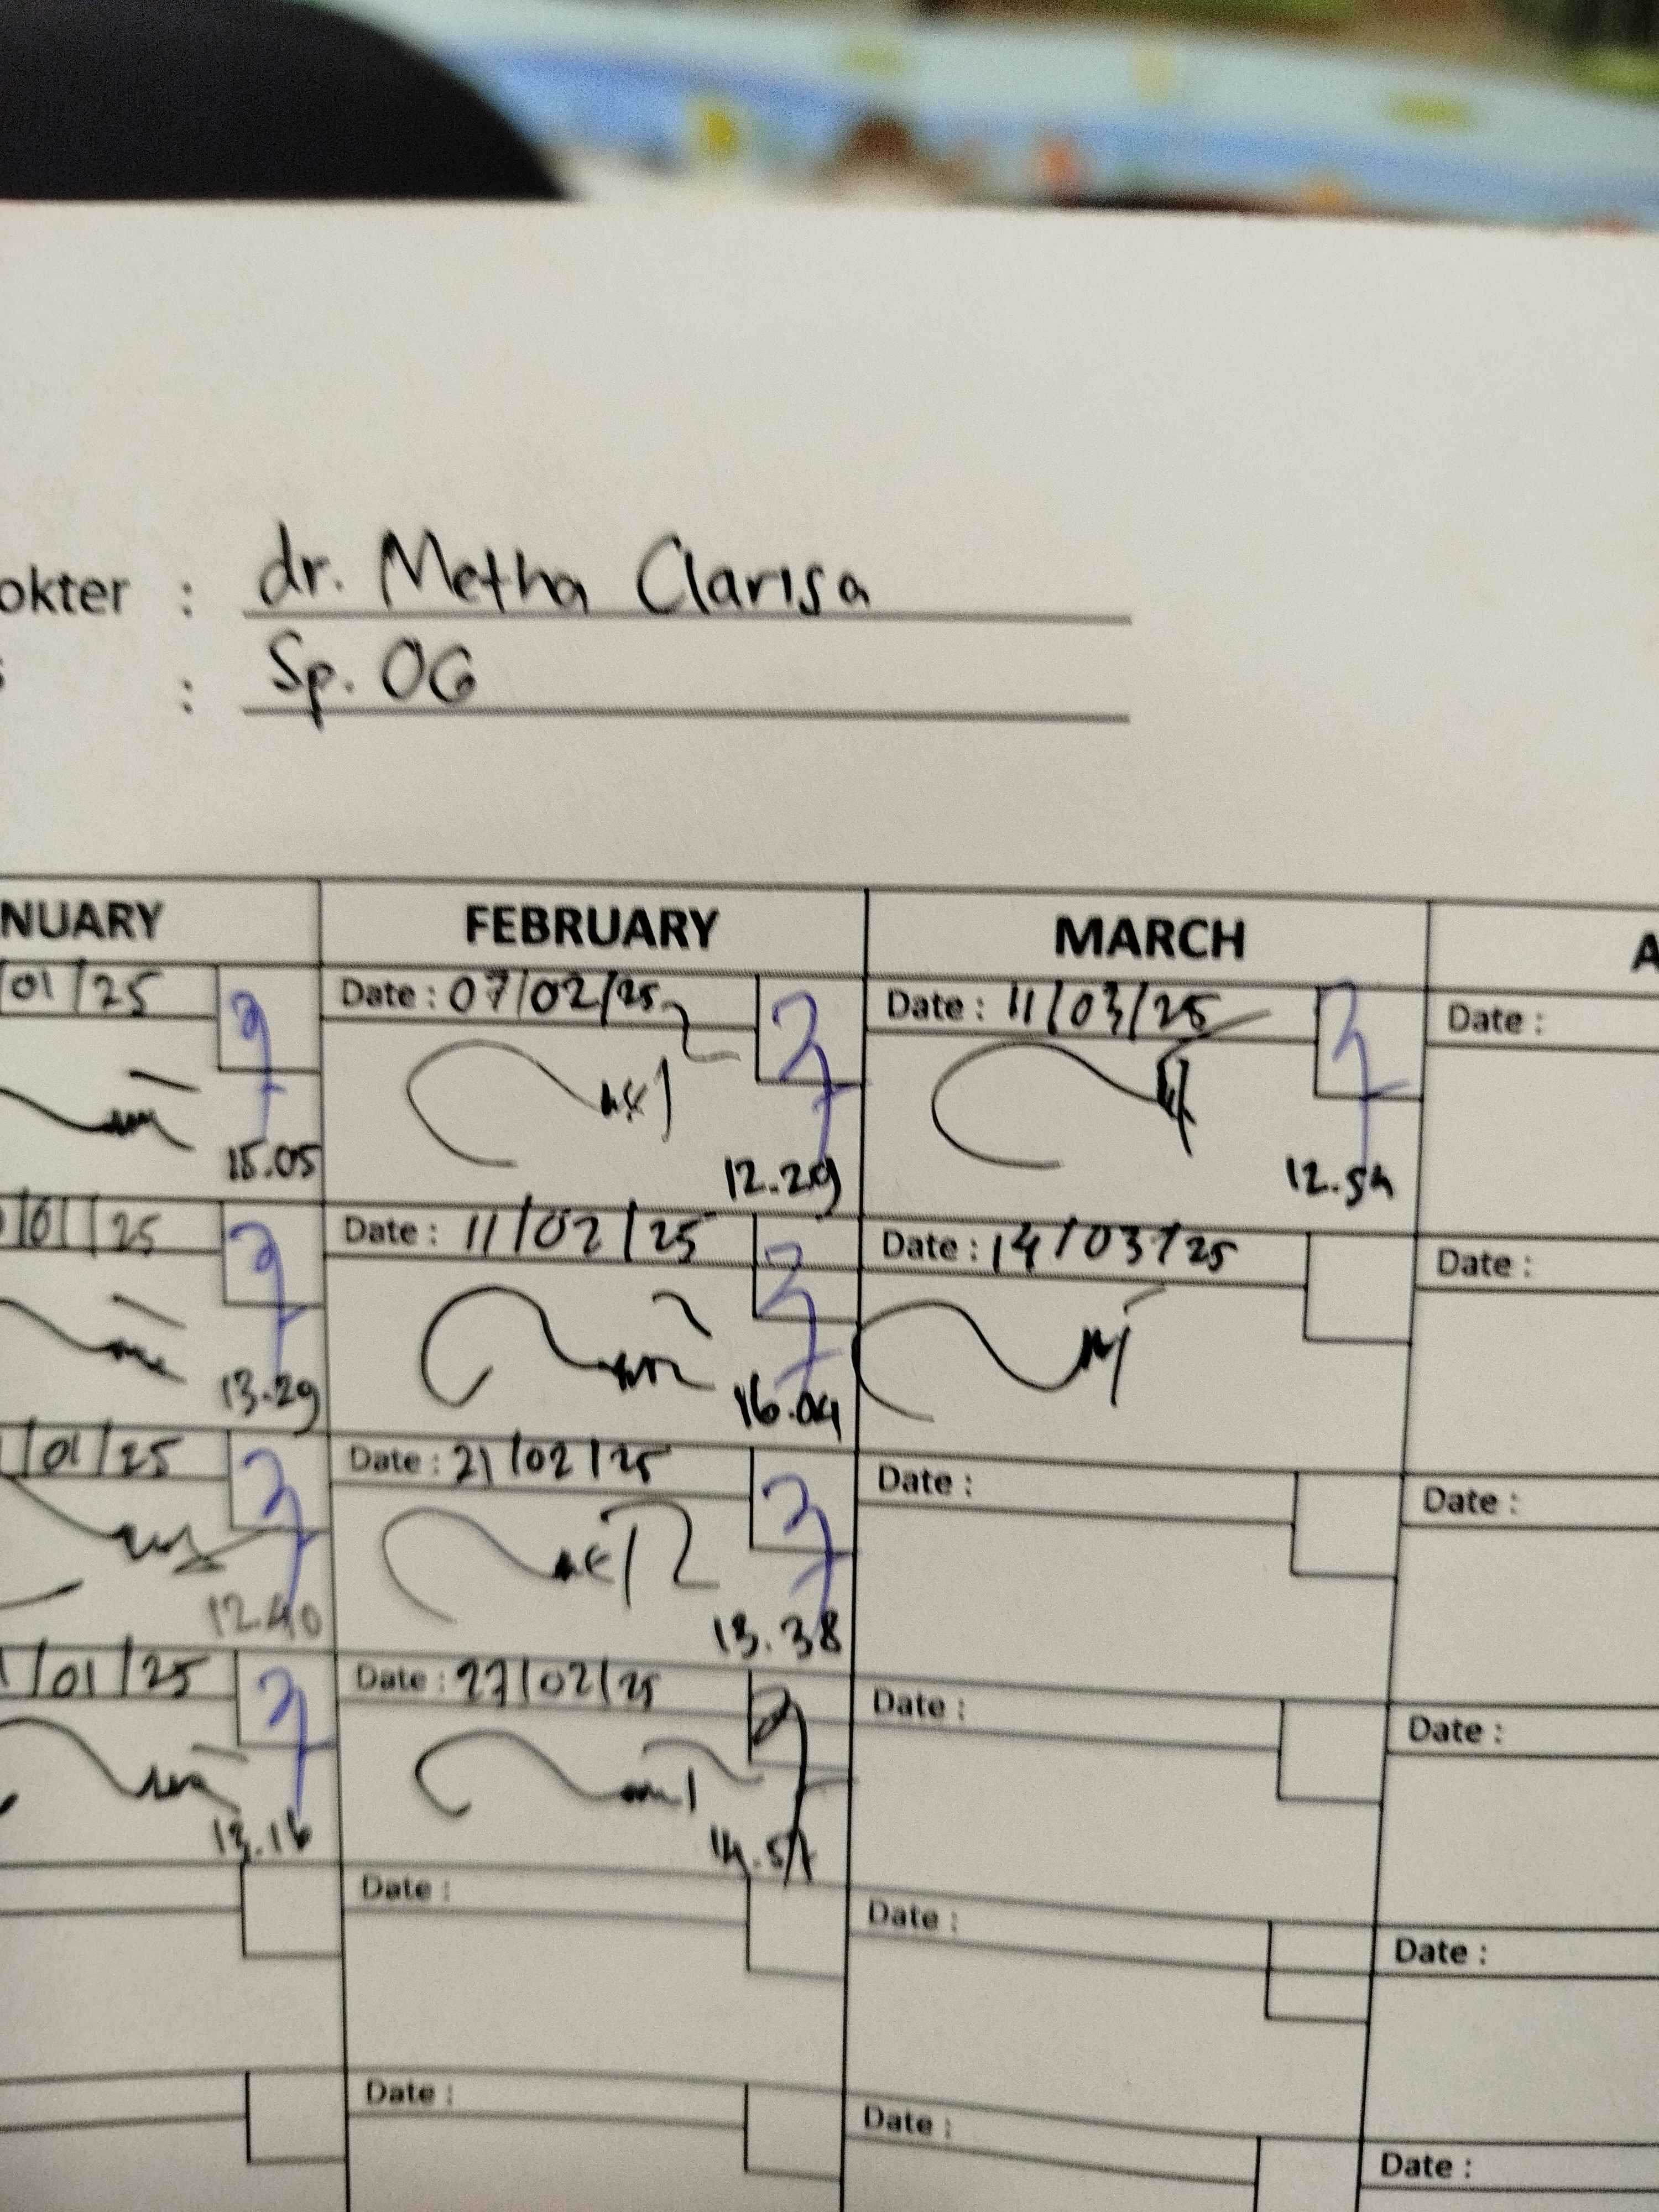 okter : dr. Metha Clarisa
: Sp. OG
NUARY FEBRUARY MARCH A
/01/25 Date : 07/02/25 Date : 11/03/25 Date :
15.05 12.29 12.54
/01/25 Date : 11/02/25 Date : 14/03/25 Date :
13.29 16.04
/01/25 Date : 21/02/25 Date : Date :
12.40 13.38
/01/25 Date : 27/02/25 Date : Date :
13.16 14.57
Date : Date : Date :
Date : Date : Date :